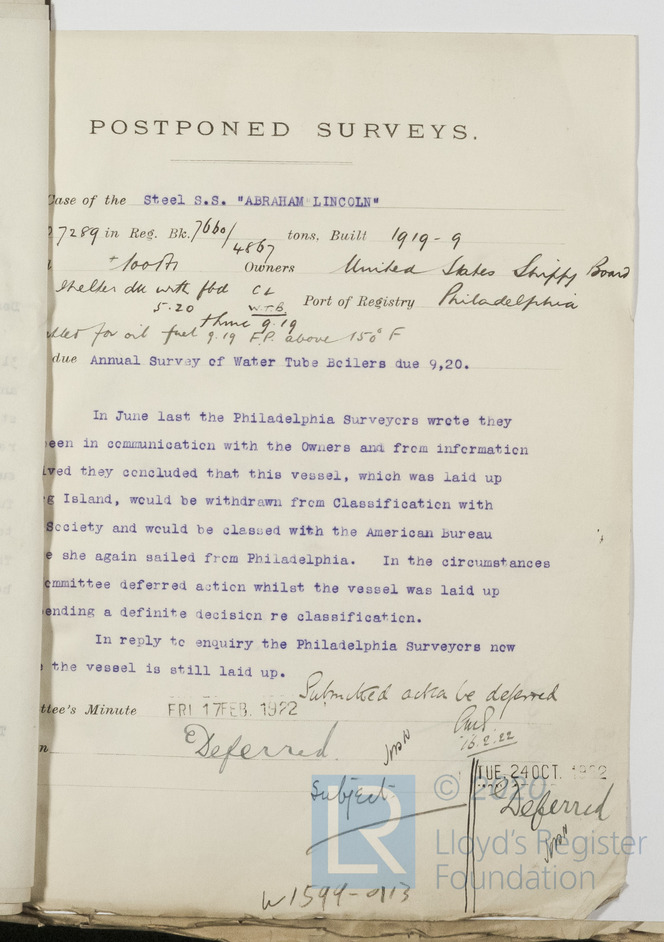 POSTPONED SURVEYS.
Case of the Steel S.S. "ABRAHAM LINCOLN"
7289 in Reg. Bk. 7660/4867 tons, Built 1919-9
+100A1 Owners United States Shippg Board
Shelter dk with fbd CL
5.20 W.T.B. Port of Registry Philadelphia
9.19
for oil fuel 9.19 F.P. above 150° F
due Annual Survey of Water Tube Boilers due 9,20.
In June last the Philadelphia Surveyors wrote they
een in communication with the Owners and from information
ived they concluded that this vessel, which was laid up
g Island, would be withdrawn from Classification with
Society and would be classed with the American Bureau
e she again sailed from Philadelphia. In the circumstances
ommittee deferred action whilst the vessel was laid up
ending a definite decision re classification.
In reply to enquiry the Philadelphia Surveyors now
the vessel is still laid up.
Submitted action be deferred
ttee's Minute FRI 17 FEB. 1922
16.2.22
n Deferred.
TUE. 24 OCT. 1922
Subject
Deferred
© 2020
LR
Lloyd's Register
Foundation
W1599-0113